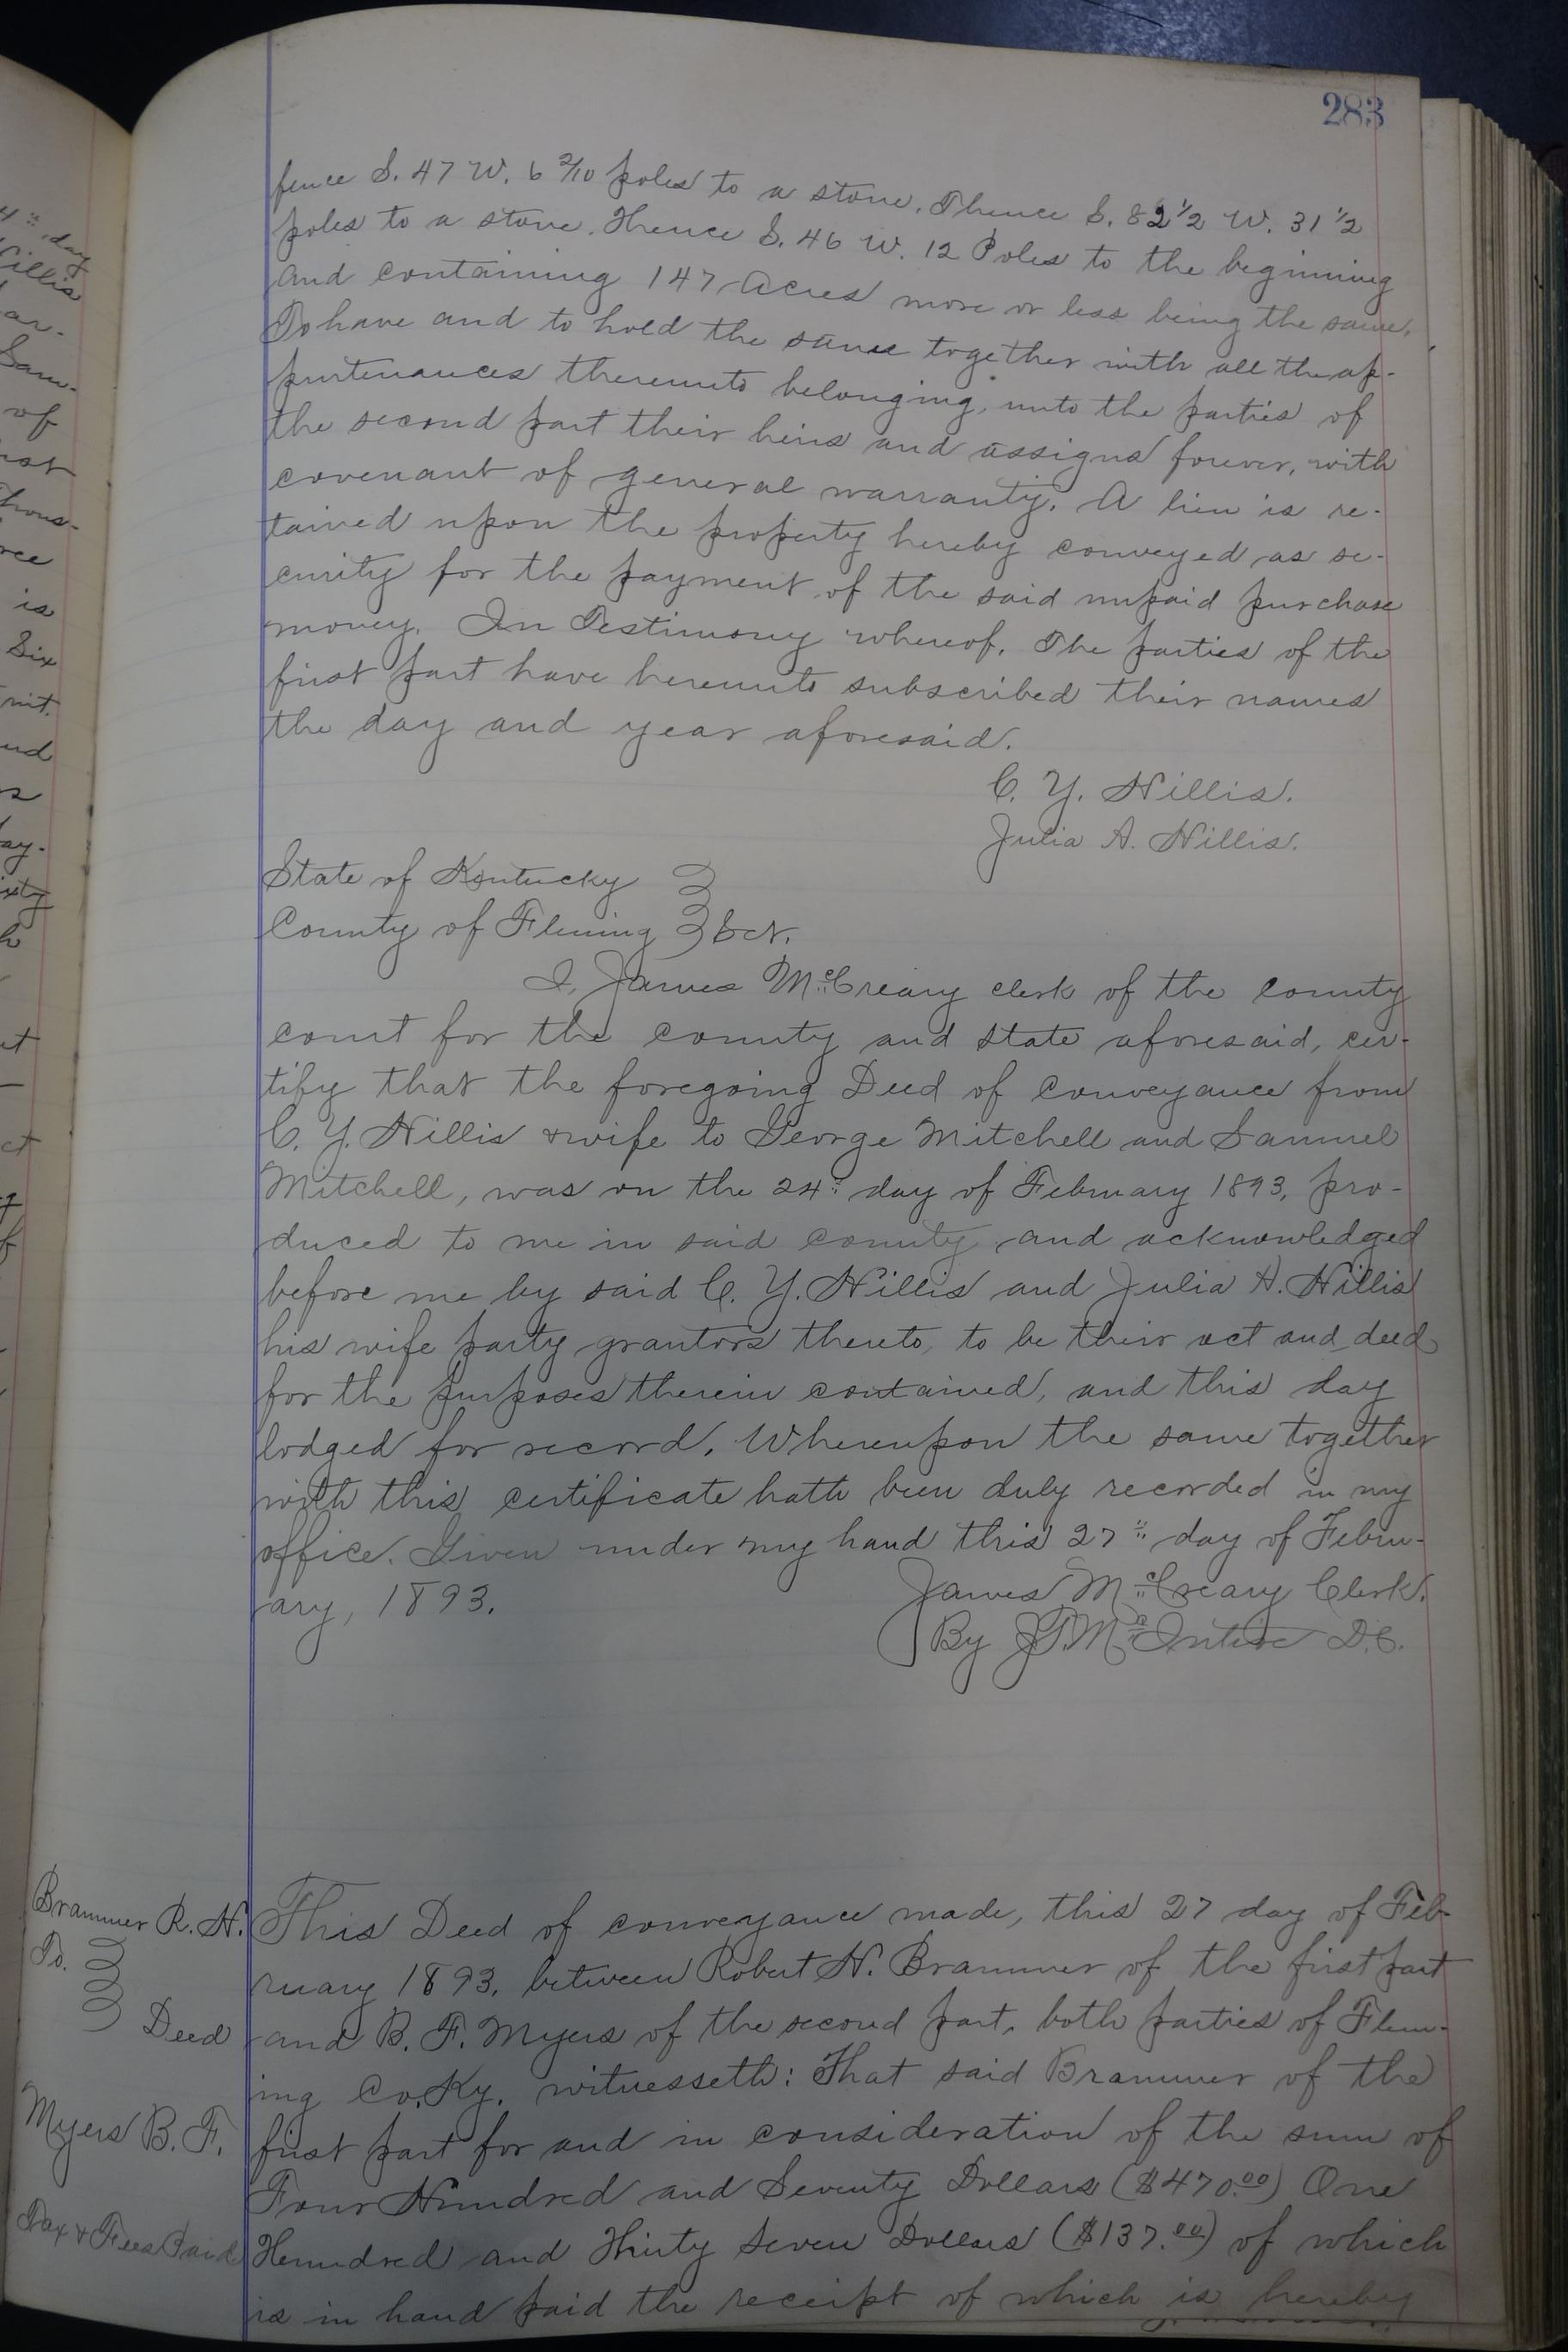 283
fence S. 47 W. 6 2/10 poles to a stone. Thence S. 82 1/2 W. 31 1/2
poles to a stone. Thence S. 46 W. 12 Poles to the beginning
and containing 147 Acres more or less being the same.
To have and to hold the same together with all the ap-
purtenances thereunto belonging, unto the parties of
the second part their heirs and assigns forever, with
covenant of general warranty. A lien is re-
tained upon the property hereby conveyed as se-
curity for the payment of the said unpaid purchase
money. In Testimony whereof. The parties of the
first part have hereunto subscribed their names
the day and year aforesaid.
C. Y. Hillis.
Julia A. Hillis.
State of Kentucky
County of Fleming Sct.
I, James McCreary clerk of the county
court for the county and state aforesaid, cer-
tify that the foregoing Deed of conveyance from
C. Y. Hillis & wife to George Mitchell and Samuel
Mitchell, was on the 24" day of February 1893, pro-
duced to me in said county and acknowledged
before me by said C. Y. Hillis and Julia A. Hillis
his wife party grantors thereto, to be their act and deed
for the purposes therein contained, and this day
lodged for record. Whereupon the same together
with this certificate hath been duly recorded in my
office. Given under my hand this 27" day of Febru-
ary, 1893.
James McCreary Clerk.
By J.T. McIntire D.C.
Brammer R. H.
To.
Deed
Myers B. F.
Tax & Fees Paid
This Deed of conveyance made, this 27 day of Feb-
ruary 1893, between Robert H. Brammer of the first part
and B. F. Myers of the second part, both parties of Flem-
ing Co. Ky. witnesseth: That said Brammer of the
first part for and in consideration of the sum of
Four Hundred and Seventy Dollars ($470.00) One
Hunndred and Thirty Seven Dollars ($137.00) of which
is in hand paid the receipt of which is hereby